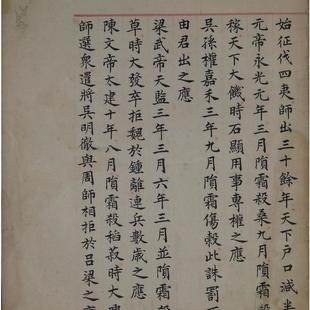 始征伐四夷師出三十餘年天下戶口減半
元帝永光元年三月隕霜殺桑九月隕霜
稼天下大饑時石顯用事專權之應
吳孫權嘉禾三年九月隕霜傷穀此誅罰
由君出之應
梁武帝天監三年三月六年三月並隕霜
草時大發卒拒魏於鍾離連兵數歲之應
陳文帝太建十年八月隕霜殺稻菽時大建
師選眾遣將吳明徹與周師相拒於呂梁之